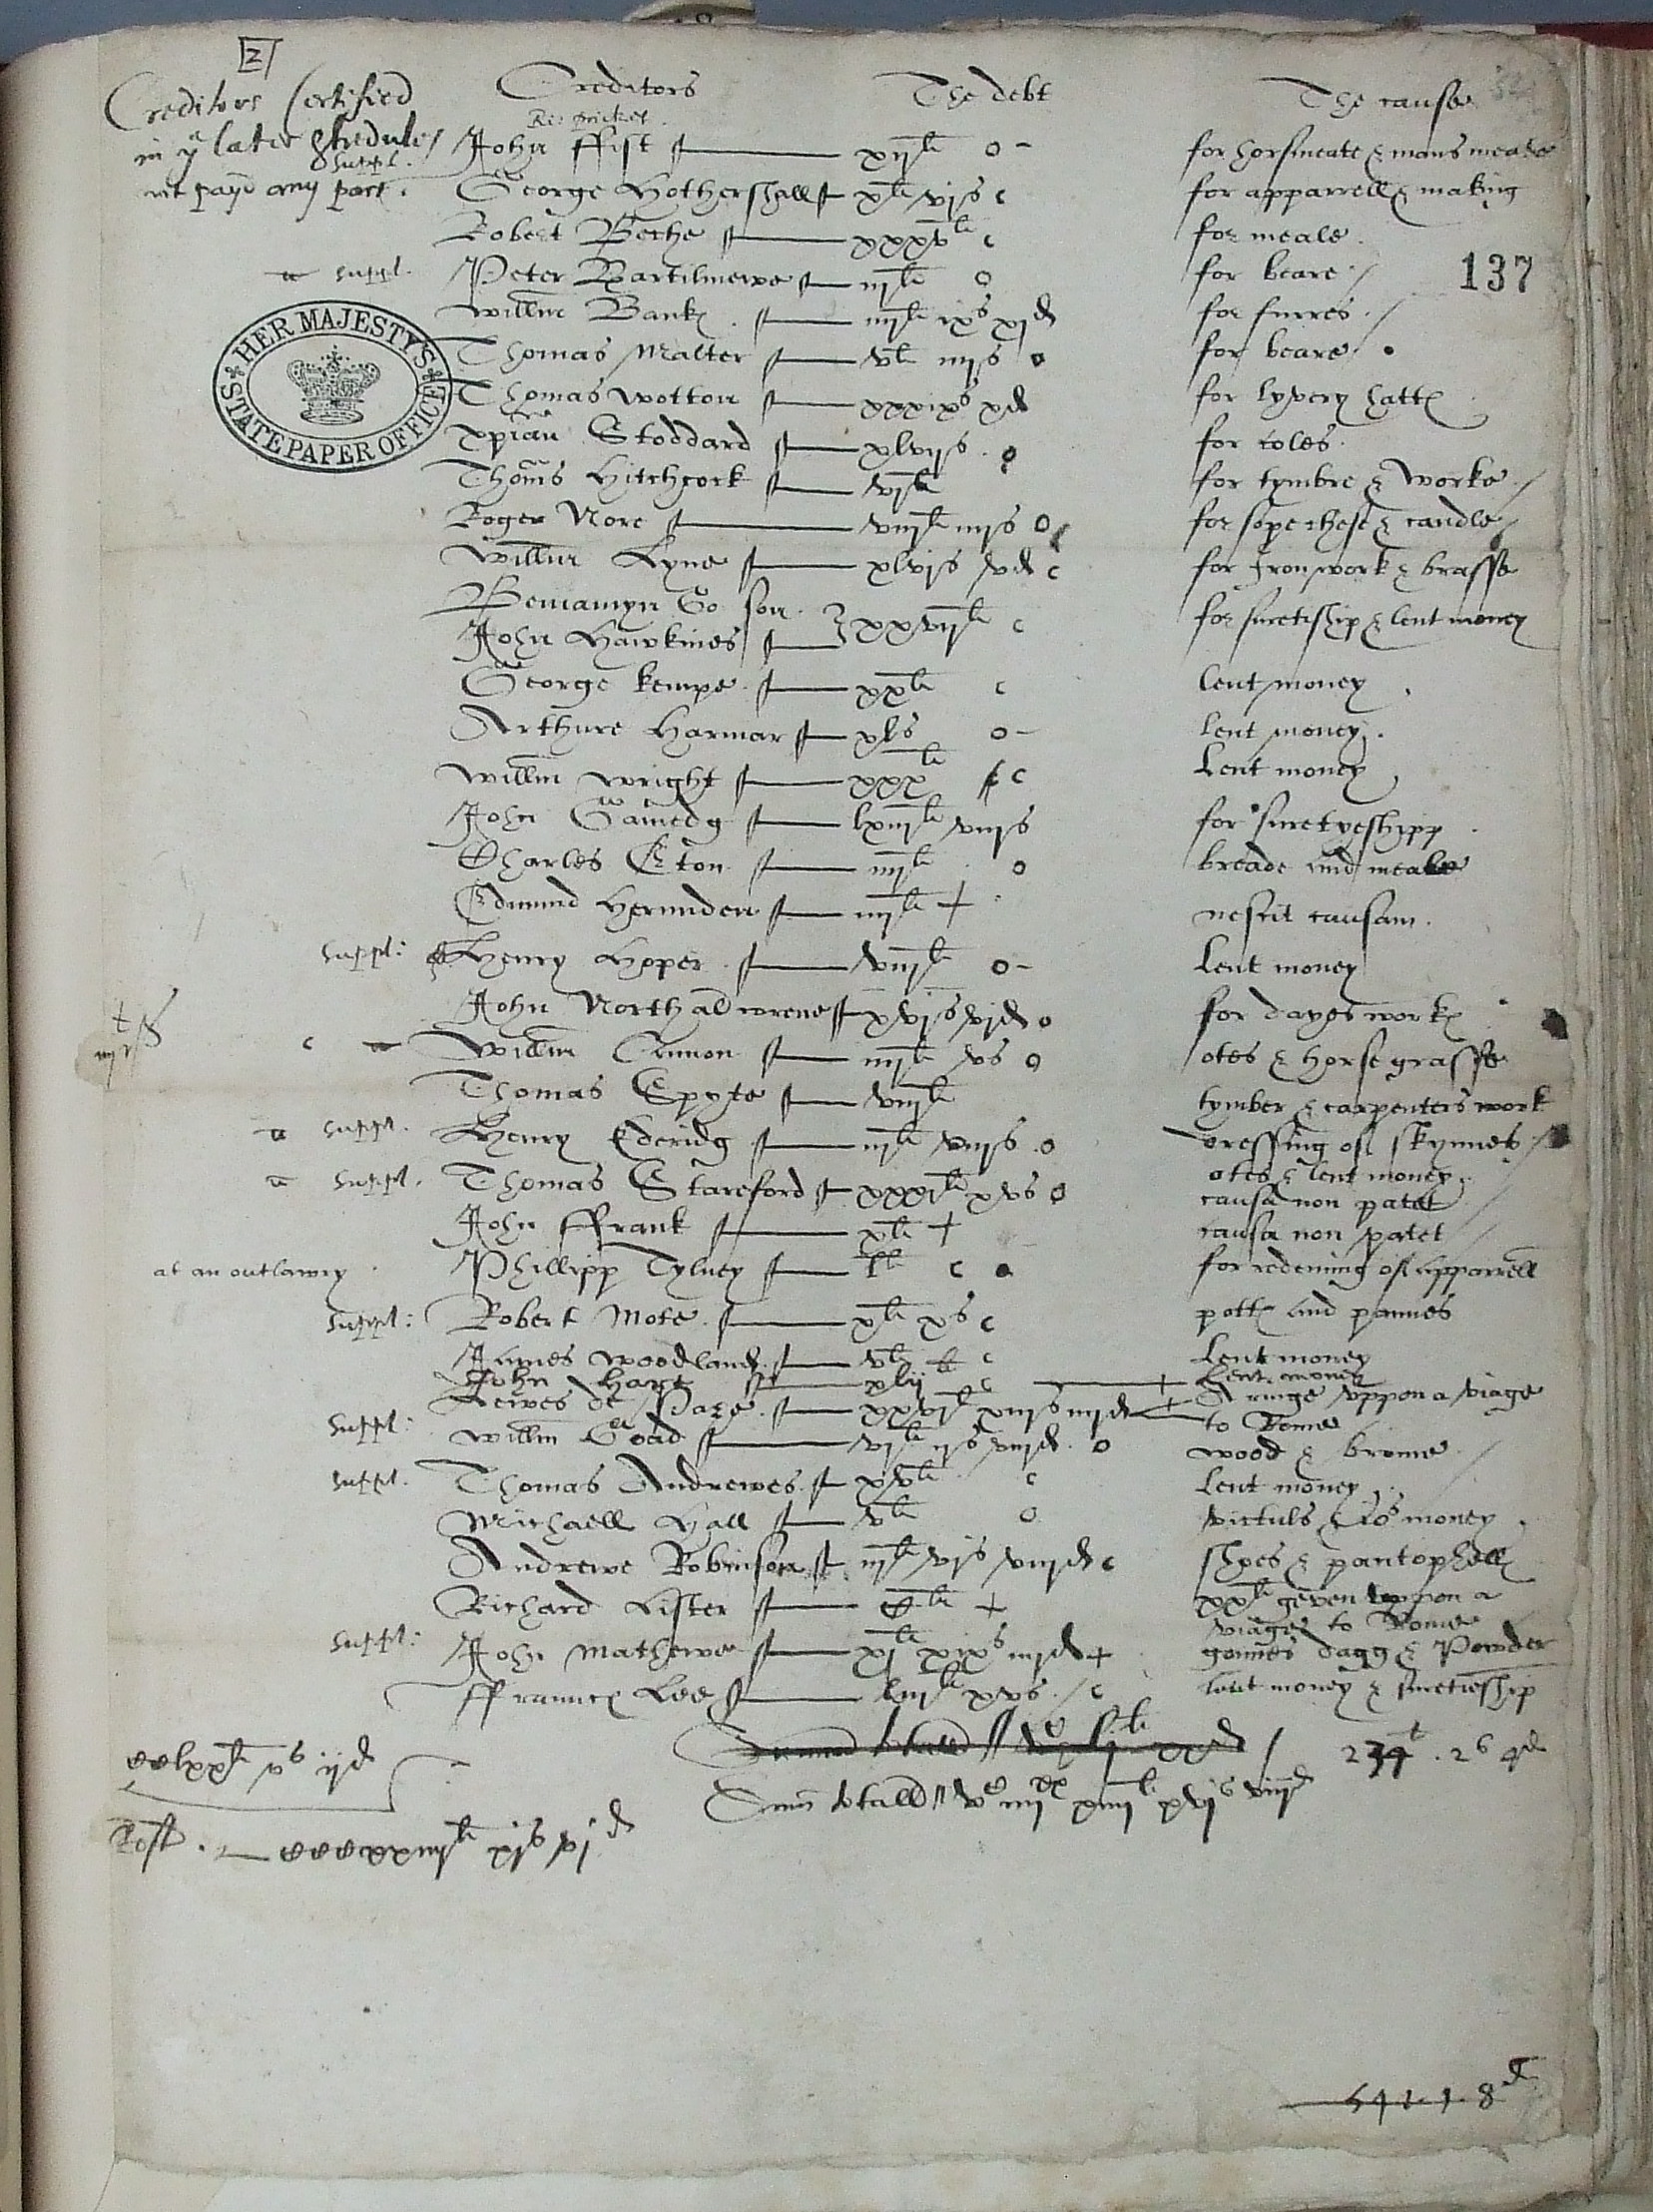 2
Creditors Certified
in yᵉ later Shedule
suppl.
not payd any part.
Creditors The debt The cause
Ric: pricket.
John ffist xijˡⁱ o for horsmeate & mans meate
George Hothershall xˡⁱ vjs c for apparrell & making
Robert Beche xxxvˡⁱ c for meale.
suppl. Peter Bartilmewe iijˡⁱ o for beare /
137
HER MAJESTY'S STATE PAPER OFFICE
Willm Bank iiijˡⁱ ixˢ xjd for furres. /
Thomas Malter vˡⁱ iiijs o for beare.
Thomas Wotton xxxixˢ xd for lyvery hatt
xpian Stoddard xlvijs. o for coles.
Thoms Hitchcock vjˡⁱ for tymbre & worke /
Roger Nore viijˡⁱ iiijs o for sope chese & candle /
Willm Lyne xlvjs vd c for Ironwork & brasse
Beniamyn Go son.
John Hawkines xxvijˡⁱ c for suretiship & lent money
George kempe xxˡⁱ c lent money.
Arthure Harmar xls o lent money.
Willm wright xxxˡⁱ c Lent money
John lxiijˡⁱ viijs for suretyeshipp
Charles Eton iiijˡⁱ o breade and meale
Edmund Herinden iiijˡⁱ + nescit causam.
suppl: Henry Hoper viijˡⁱ o Lent money
John North als wrene xvjs vjd o for dayes work
c Willm Cannon iiijˡⁱ vs o otes & horse grasse
Thomas Spyte viijˡⁱ tymber & carpenters work
suppl. Henry Ederidg iijˡⁱ viijs. o dressing of skynnes /
suppl. Thomas Stareford xxxiˡⁱ xvs o otes & lent money.
causa non patet
John ffrank xˡⁱ + causa non patet
at an outlawry Phillipp Tylney lˡⁱ c for redeming of apparrell
suppl: Robert Mote. xˡⁱ xs c pott and pannes
James Woodland. vˡⁱ c Lent money
John Hare xlij c Lent money
Lewes de Paze. xxviˡⁱ xiijs iiijd A ringe vppon a viage
to Rome
suppl: Willm Goad vjˡⁱ ijs viijd. o wood & brome /
suppl. Thomas Andrewes. xvˡⁱ c lent money.
Michaell Hall vˡⁱ o victuls & money.
Andrewe Robinson iijˡⁱ vjs viijd c shoes & pantophell
Richard Lister Cˡⁱ + xxˡⁱ geven vppon a
viage to Rome
suppl: John Mathewe xjˡⁱ xixˢ iiijd + gonnes dagg & Powder
ffrannc Lee liiijˡⁱ xvs. / c lent money & suretieship
CClxxˡⁱ vs ijd
Summa totall
234ˡ. 2s 4d
Sum totall // Vᶜ iiijˣˣ xiiijˡⁱ xvjs viijd
Rest. CCCxxiiijˡⁱ xjs vjd
541. 1. 8d